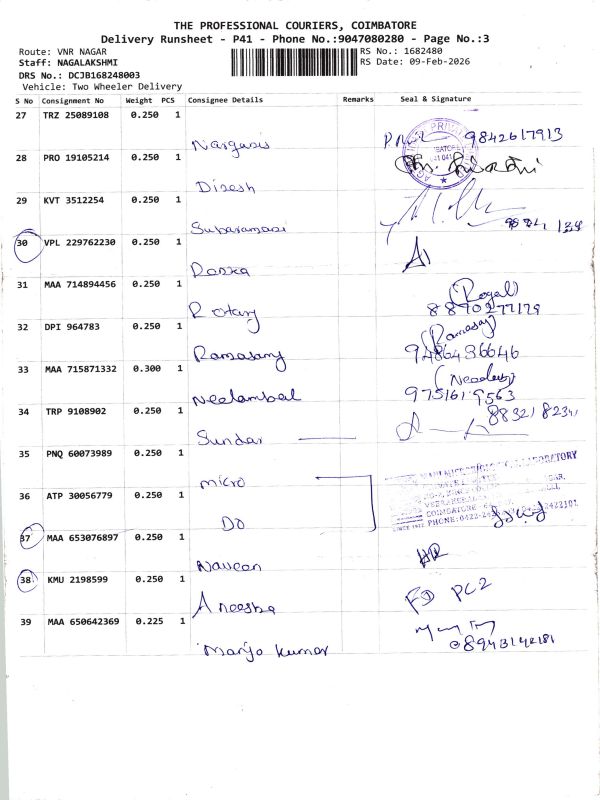 THE PROFESSIONAL COURIERS, COIMBATORE
Delivery Runsheet - P41 - Phone No.:9047080280 - Page No.:3
Route: VNR NAGAR
RS No.: 1682480
Staff: NAGALAKSHMI
RS Date: 09-Feb-2026
DRS No.: DCJB168248003
Vehicle: Two Wheeler Delivery
S No Consignment No Weight PCS Consignee Details Remarks Seal & Signature
27 TRZ 25089108 0.250 1
Nargasis 9842617913
28 PRO 19105214 0.250 1
Dinesh
29 KVT 3512254 0.250 1
30 VPL 229762230 0.250 1
31 MAA 714894456 0.250 1
Rotary (Royal)
32 DPI 964783 0.250 1
Ramasamy (Ramasay)
9486436646
33 MAA 715871332 0.300 1
Neelambal
34 TRP 9108902 0.250 1
Sundar
35 PNQ 60073989 0.250 1
micro
36 ATP 30056779 0.250 1
DO
37 MAA 653076897 0.250 1
Naveen
38 KMU 2198599 0.250 1
PC2
39 MAA 650642369 0.225 1
Manjo kumar